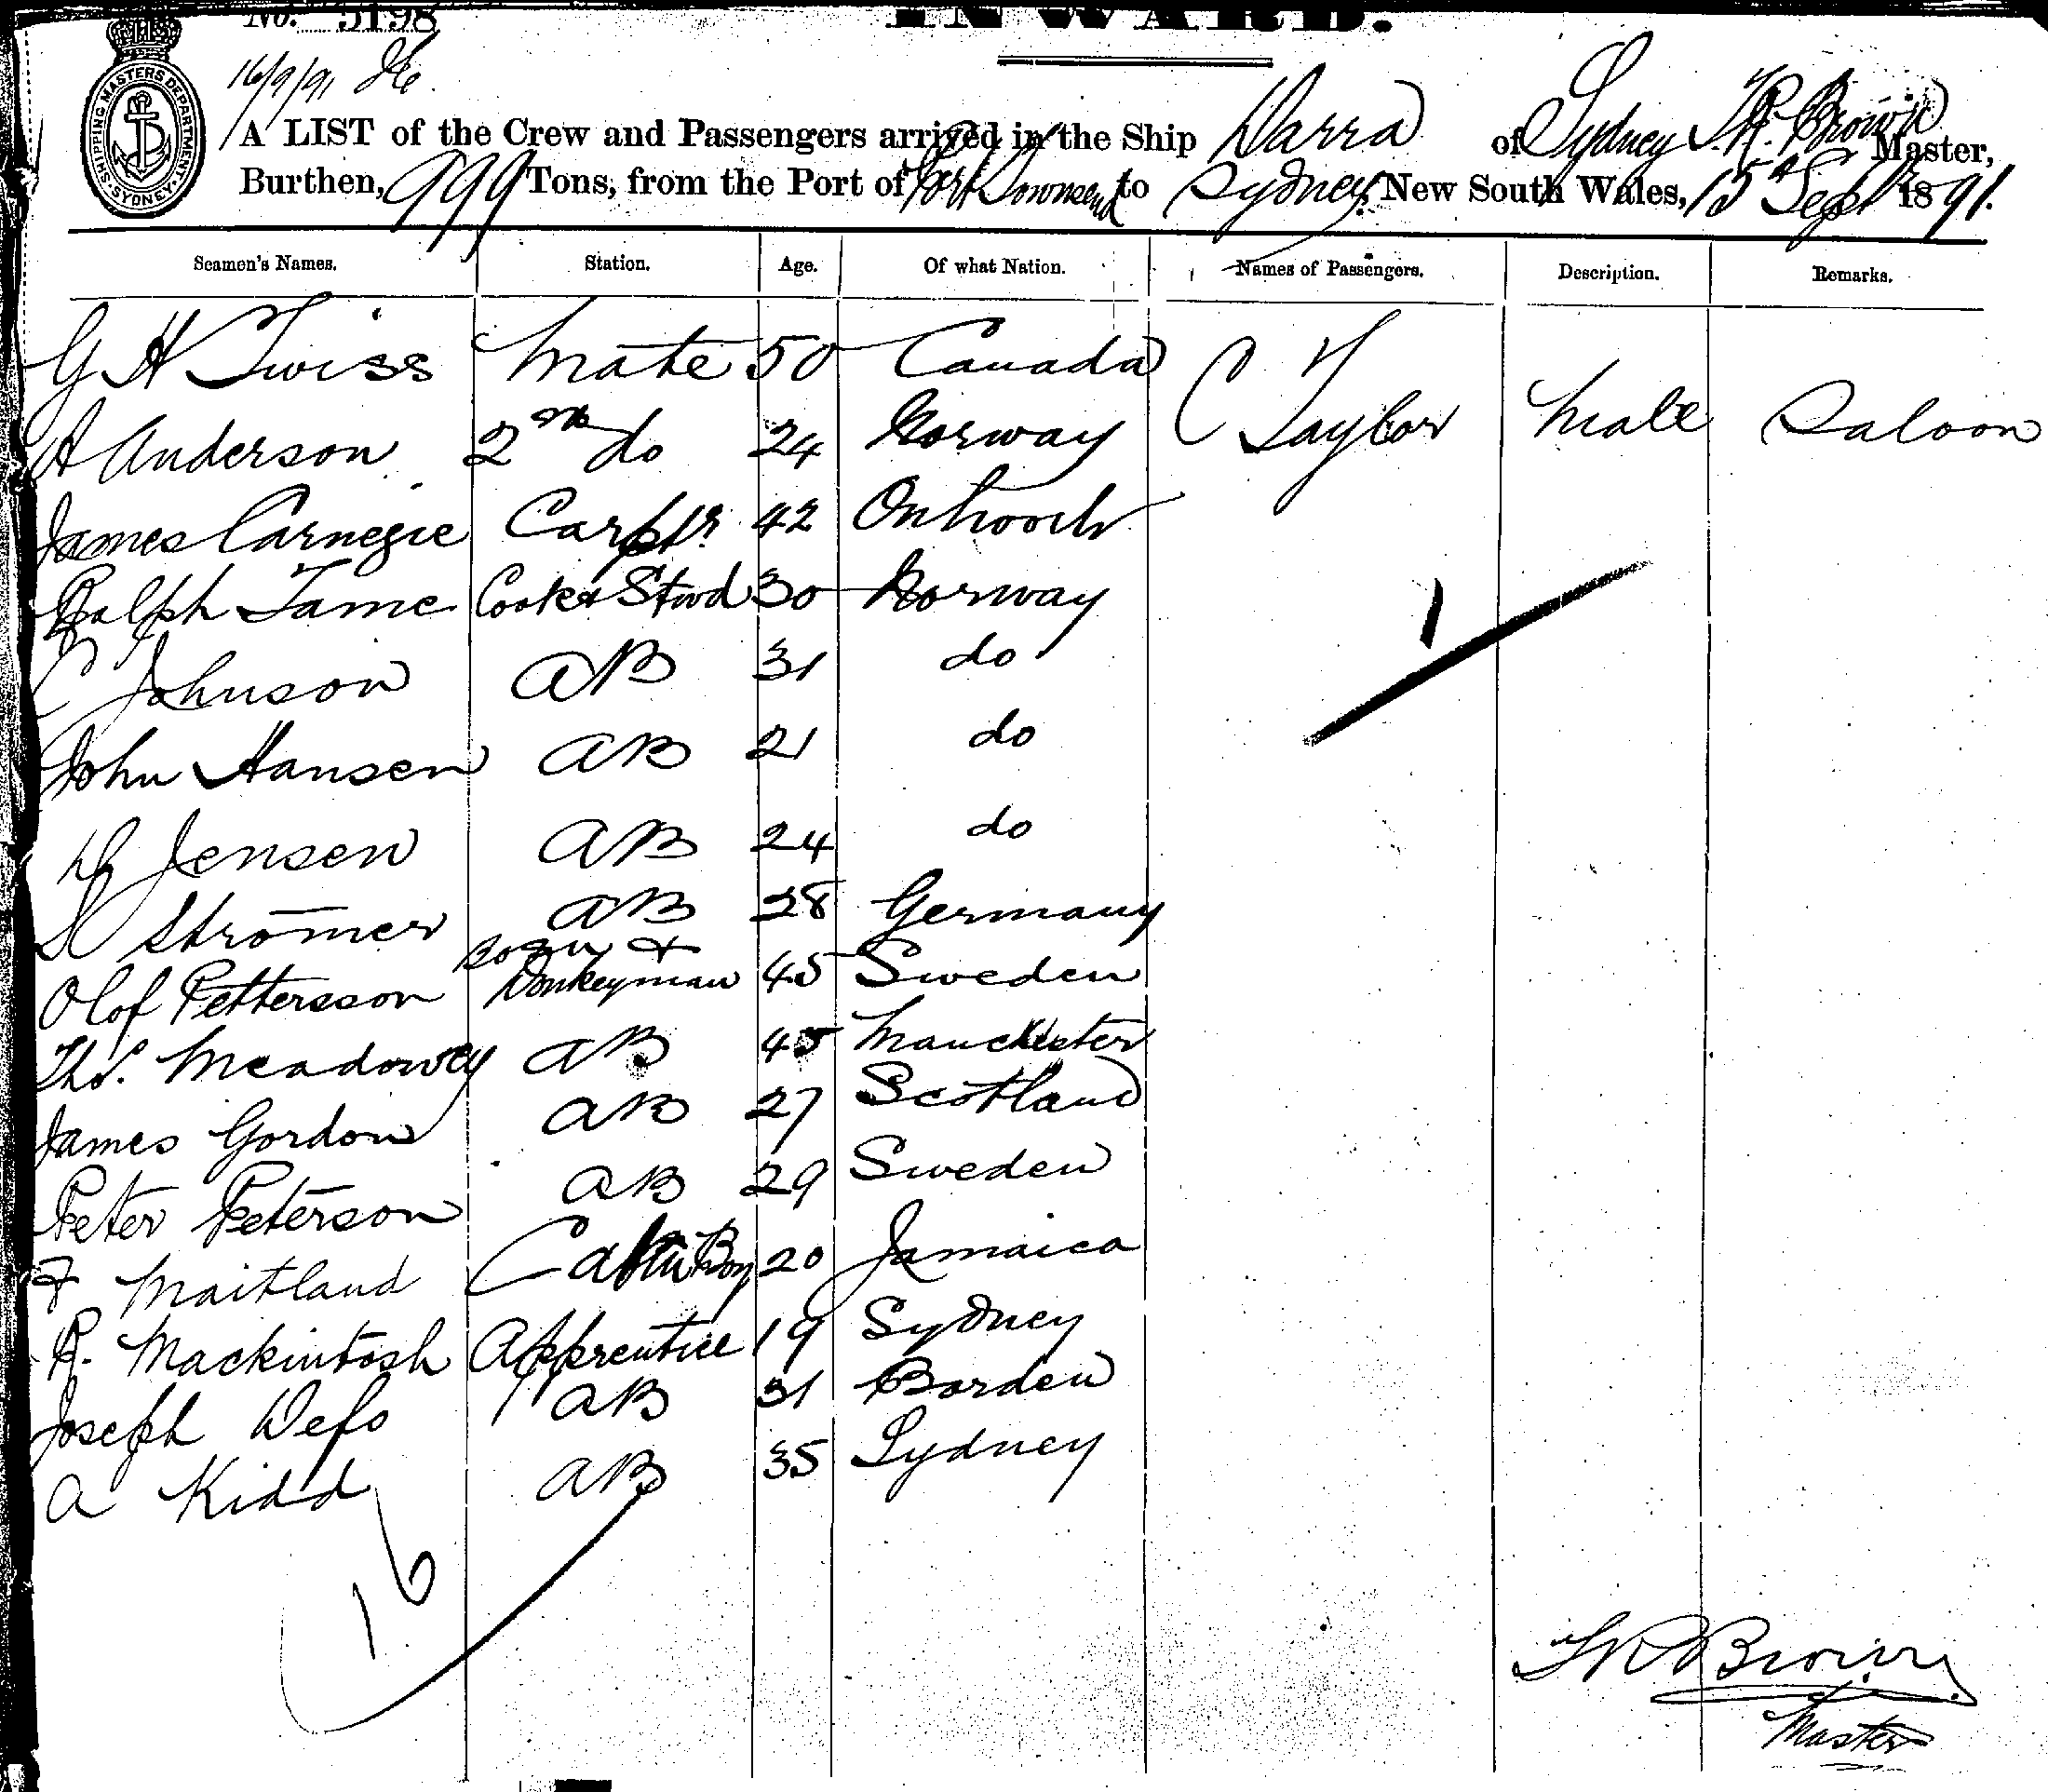 No. 5198
INWARD.
16/9/91
SHIPPING MASTERS DEPARTMENT SYDNEY
A LIST of the Crew and Passengers arrived in the Ship Darra of Sydney T.R. Brown Master,
Burthen, 999 Tons, from the Port of Port Townsend to Sydney, New South Wales, 15th Sept 1891.
Seamen's Names. Station. Age. Of what Nation. Names of Passengers. Description. Remarks.
G H Twiss Mate 50 Canada
A Anderson 2nd do 24 Norway C Taylor Male Saloon
James Carnegie Carptr. 42
Ralph Tame Cook & Stwd 30 Norway
C Johnson AB 31 do
John Hansen AB 21 do
Jensen AB 24 do
Stromer AB 28 Germany
Olof Pettersson Bosun & Donkeyman 45 Sweden
Thos. Meadowey AB 45 Manchester
James Gordon AB 27 Scotland
Peter Peterson AB 29 Sweden
F Maitland Cabin Boy 20 Jamaica
R. Mackintosh Apprentice 19 Sydney
Joseph AB 31
A Kidd AB 35 Sydney
1
16
T R Brown
Master